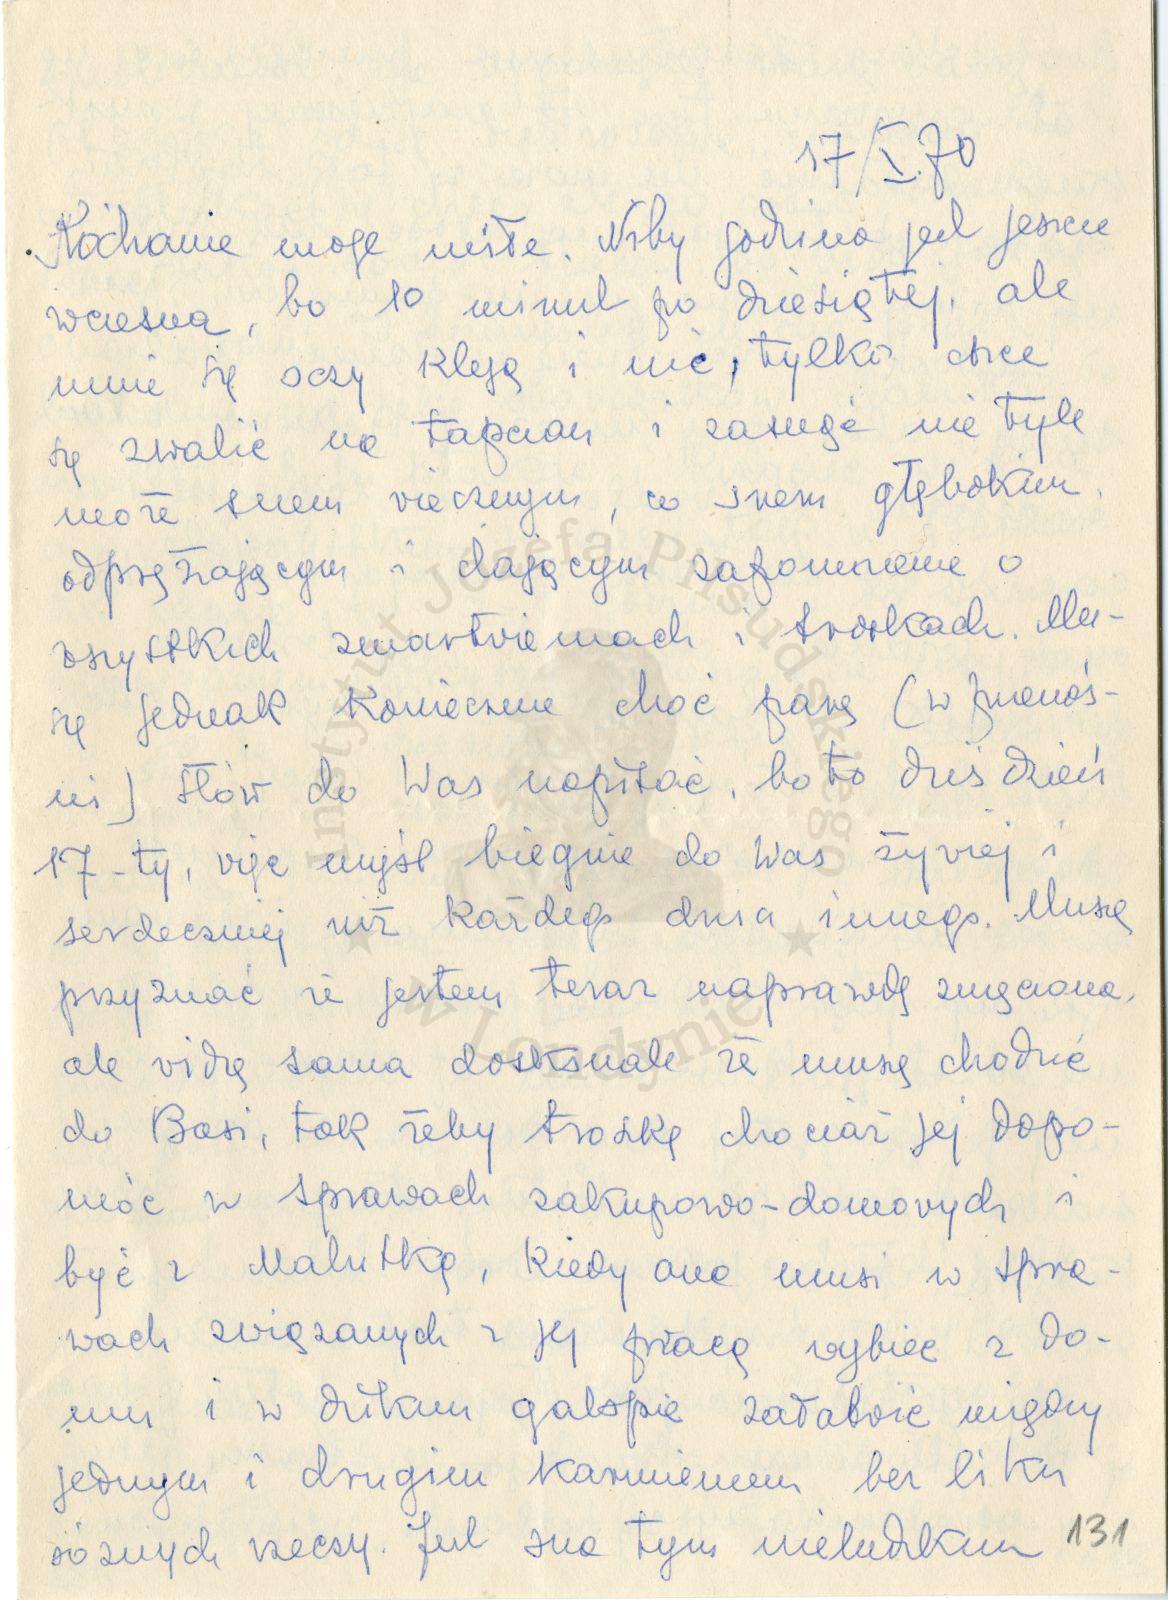 17/X.70
Kochanie moje miłe. Niby godzina jest jeszcze
wczesna, bo 10 minut po dziesiątej, ale
mnie się oczy kleją i nic, tylko chce
się zwalić na tapczan i zasnąć nie tyle
może snem wiecznym, co snem głębokim,
odprężającym i dającym zapomnienie o
wszystkich zmartwieniach i troskach. Mu-
szę jednak koniecznie choć parę (w przenoś-
ni) słów do Was napisać, bo to dziś dzień
17-ty, więc myśl biegnie do Was żywiej i
serdeczniej niż każdego dnia innego. Muszę
przyznać że jestem teraz naprawdę zmęczona,
ale widzę sama doskonale że muszę chodzić
do Basi, tak żeby troszkę chociaż jej dopo-
móc w sprawach zakupowo-domowych i
być z Malutką, kiedy ona musi w spra-
wach związanych z jej pracą wybiec z do-
mu i w dzikim galopie załatwić między
jednym i drugim karmieniem bez liku
różnych rzeczy. Jest ona tym nieludzkim
131
Instytut Józefa Piłsudskiego
★ w Londynie ★